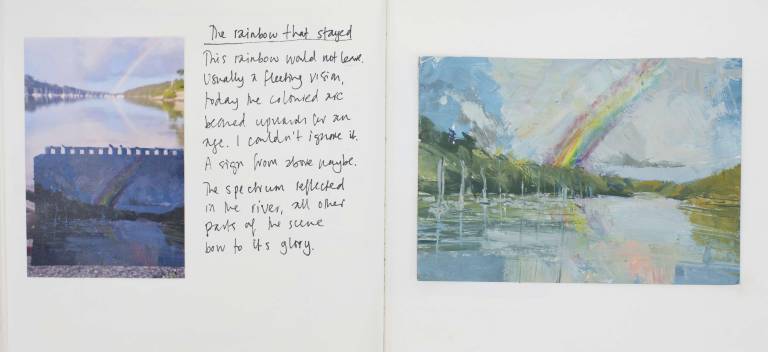 The rainbow that stayed
This rainbow would not leave.
Usually a fleeting vision,
today the coloured arc
beamed upwards for an
age. I couldn't ignore it.
A sign from above maybe.
The spectrum reflected
in the river, all other
parts of the scene
bow to its glory.